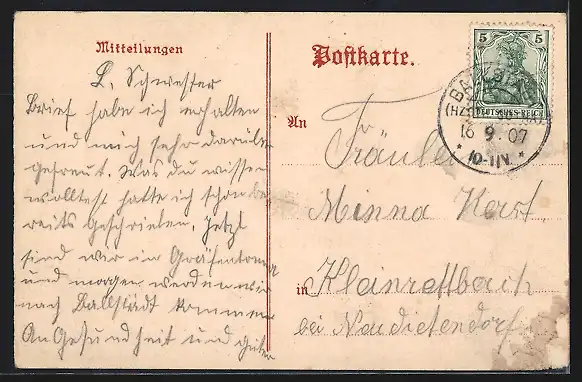 Mitteilungen
L. Schwester
Brief habe ich erhalten
und mich sehr darüber
gefreut. Was du wissen
wolltest hatte ich schon be
reits geschrieben. Jetzt
sind wir in Gräfentonna
und morgen werden wir
nach Ballstädt kommen
An Gesundheit und guten
Postkarte.
5 5
DEUTSCHES REICH
16 9. 07
* 10-11V *
An Fräulein
Minna Kerst
in Kleinrettbach
bei Neudietendorf